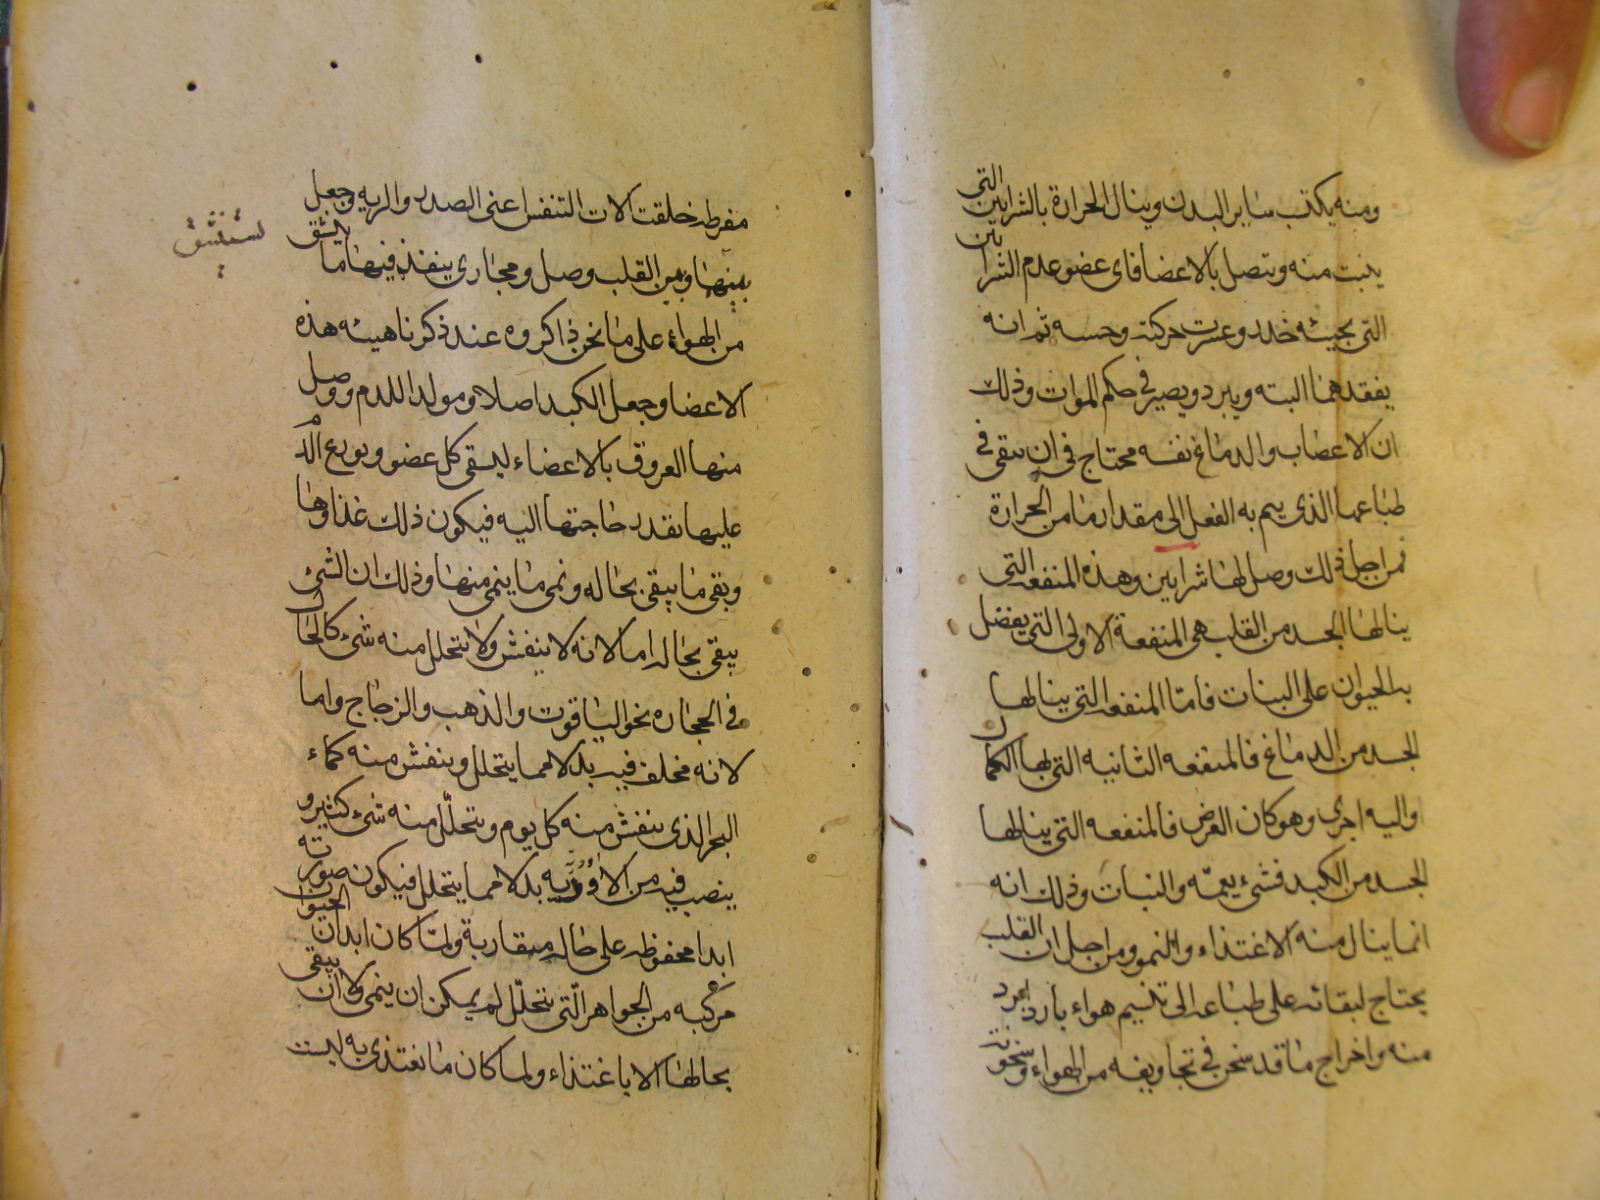 ومنه يكتسب ساير البدن وينال الحرارة بالشرايين التي
ينبت منه ويتصل بالاعضا فاى عضو عدم الشرايين
التي بجيئه خدر وعسرت حركته وحسه ثم انه
يفقدهما البته ويبرد ويصير في حكم الموات وذلك
ان الاعصاب والدماغ نفسه محتاج في ان يبقى في
طباعها الذى يتم به الفعل الى مقدار ما من الحرارة
فمن اجل ذلك وصل لها شرايين وهذه المنفعه التي
ينالها الجسد من القلب هي المنفعة الاولى التي يفضل
به الحيوان على النبات فامّا المنفعه التي ينالها
الجسد من الدماغ فالمنفعه الثانيه التي لها الكمال
واليه اجرى وهو كان الغرض فالمنفعه التي ينالها
الجسد من الكبد فشئ يعمّه والنبات وذلك انه
انما ينال منه الاغتذاء والنمو ومن اجل ان القلب
يحتاج لبقائه على طباعه الى تنسيم هواء بارد ابرد
منه واخراج ما قد سخن في تجاويفه من الهواء وسخونة
مفرطه خلقت الات التنفس اعنى الصدر والريه وجعل
بينها وبين القلب وصل ومجارى ينفذ فيها ما ينشق
يستنشق
من الهواء على ما نحن ذاكروه عند ذكرنا هيئه هذه
الاعضا وجعل الكبد اصلا ومولدا للدم ووصل
منها العروق بالاعضاء ليسقى كل عضو ويوزع الدم
عليها بقدر حاجتها اليه فيكون ذلك غذاوها
وبقى ما يبقى بحاله ونمى ما ينمى منها وذلك ان الشئ
يبقى بحاله اما لانه لا ينفش ولا يتحلل منه شئ كالحال
في الحجاره نحو الياقوت والذهب والزجاج واما
لانه مخلف فيه بدلا مما يتحلل وينفش منه كماء
البحر الذى ينفش منه كل يوم ويتحلّل منه شئ كثير و
ينصب فيه من الاوديه بدلا مما يتحلل فيكون صورته
ابدا محفوظه على حاله متقاربة ولمّا كان ابدان الحيوان
مركبه من الجواهر الّتي تتحلّل لم يمكن ان ينمى ولا ان يبقى
بحالها الا باغتذاء ولما كان ما تغتذى به ليست